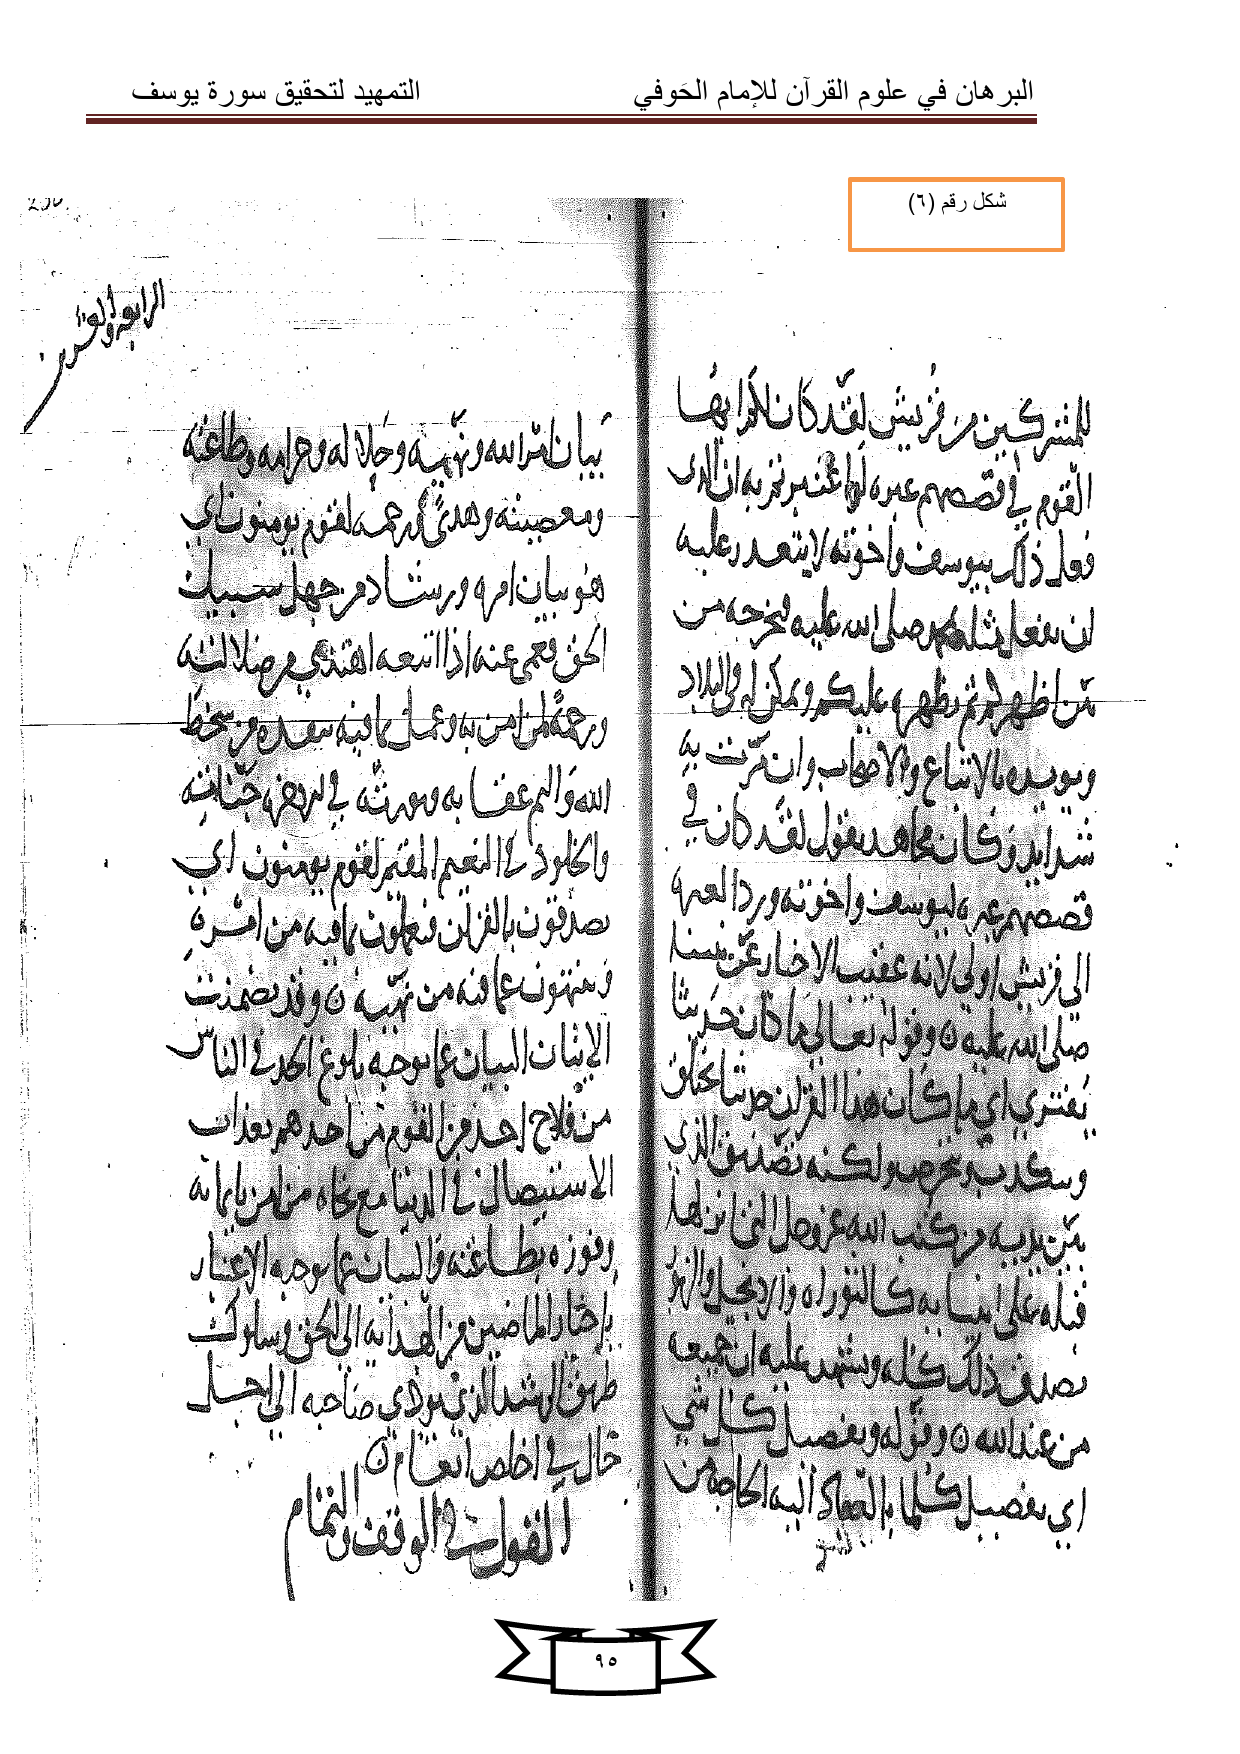 البرهان في علوم القرآن للإمام الحَوفي
التمهيد لتحقيق سورة يوسف
شكل رقم (٦)
للمشركين من قريش لقد كان لكم ايها
القوم في قصصهم عبره لو اعتبرتم به ان الذي
فعل ذلك بيوسف واخوته لا يتعذر عليه
ان يفعل مثله بمحمد صلى الله عليه فيخرجه من
بين اظهركم ثم يظهره عليكم ويمكن له في البلاد
ويويده بالاتباع والاصحاب وان مرت به
شدايد وكان مجاهد يقول لقد كان في
قصصهم عبره ليوسف واخوته ورد العبره
الى قريش اولى لانه عقيب الاخبار عن نبينا
صلى الله عليه ن وقوله تعالى ما كان حديثا
يفترى اي ما كان هذا القران حديثا يختلق
ويتكذب ويتخرص ولكنه تصديق الذي
بين يديه من كتب الله عز وجل التي انزلها
قبله على انبيايه كالتوراه والانجيل والزبور
يصدق ذلك كله ويشهد عليه ان جميعه
من عند الله ن وقوله وتفصيل كل شي
اي تفصيل كلما بالعباد اليه الحاجة من
الرابعه والعشرين
بيان امر الله ونهيه وحلاله وحرامه وطاعته
ومعصيته وهدى ورحمه لقوم يومنون اي
هو بيان امره ورشاد من جهل سبيل
الحق فعمي عنه اذا اتبعه اهتدى من ضلالته
ورحمة لمن امن به وعمل بما فيه ينقذه من سخط
الله واليم عقابه ويورثه في الاخره جناته
والخلود في النعيم المقيم لقوم يومنون اي
يصدقون بالقران فيعملون بما فيه من امره
وينتهون عما فيه من نهيه ن وقد تضمنت
الايتان البيان عما يوجبه بلوغ الحد في الناس
من فلاح احد من القوم من اخذهم بعذاب
الاستيصال في الدنيا مع نجاه من امن بايمانه
وفوزه بطاعته والبيان عما يوجبه الاعتبار
باخبار الماضين من الهدايه الى الحق وسلوك
طريق الرشد الذي يودي صاحبه الى اجل
حال في اخلص انعام ن
القول في الوقف والتمام
٩٥